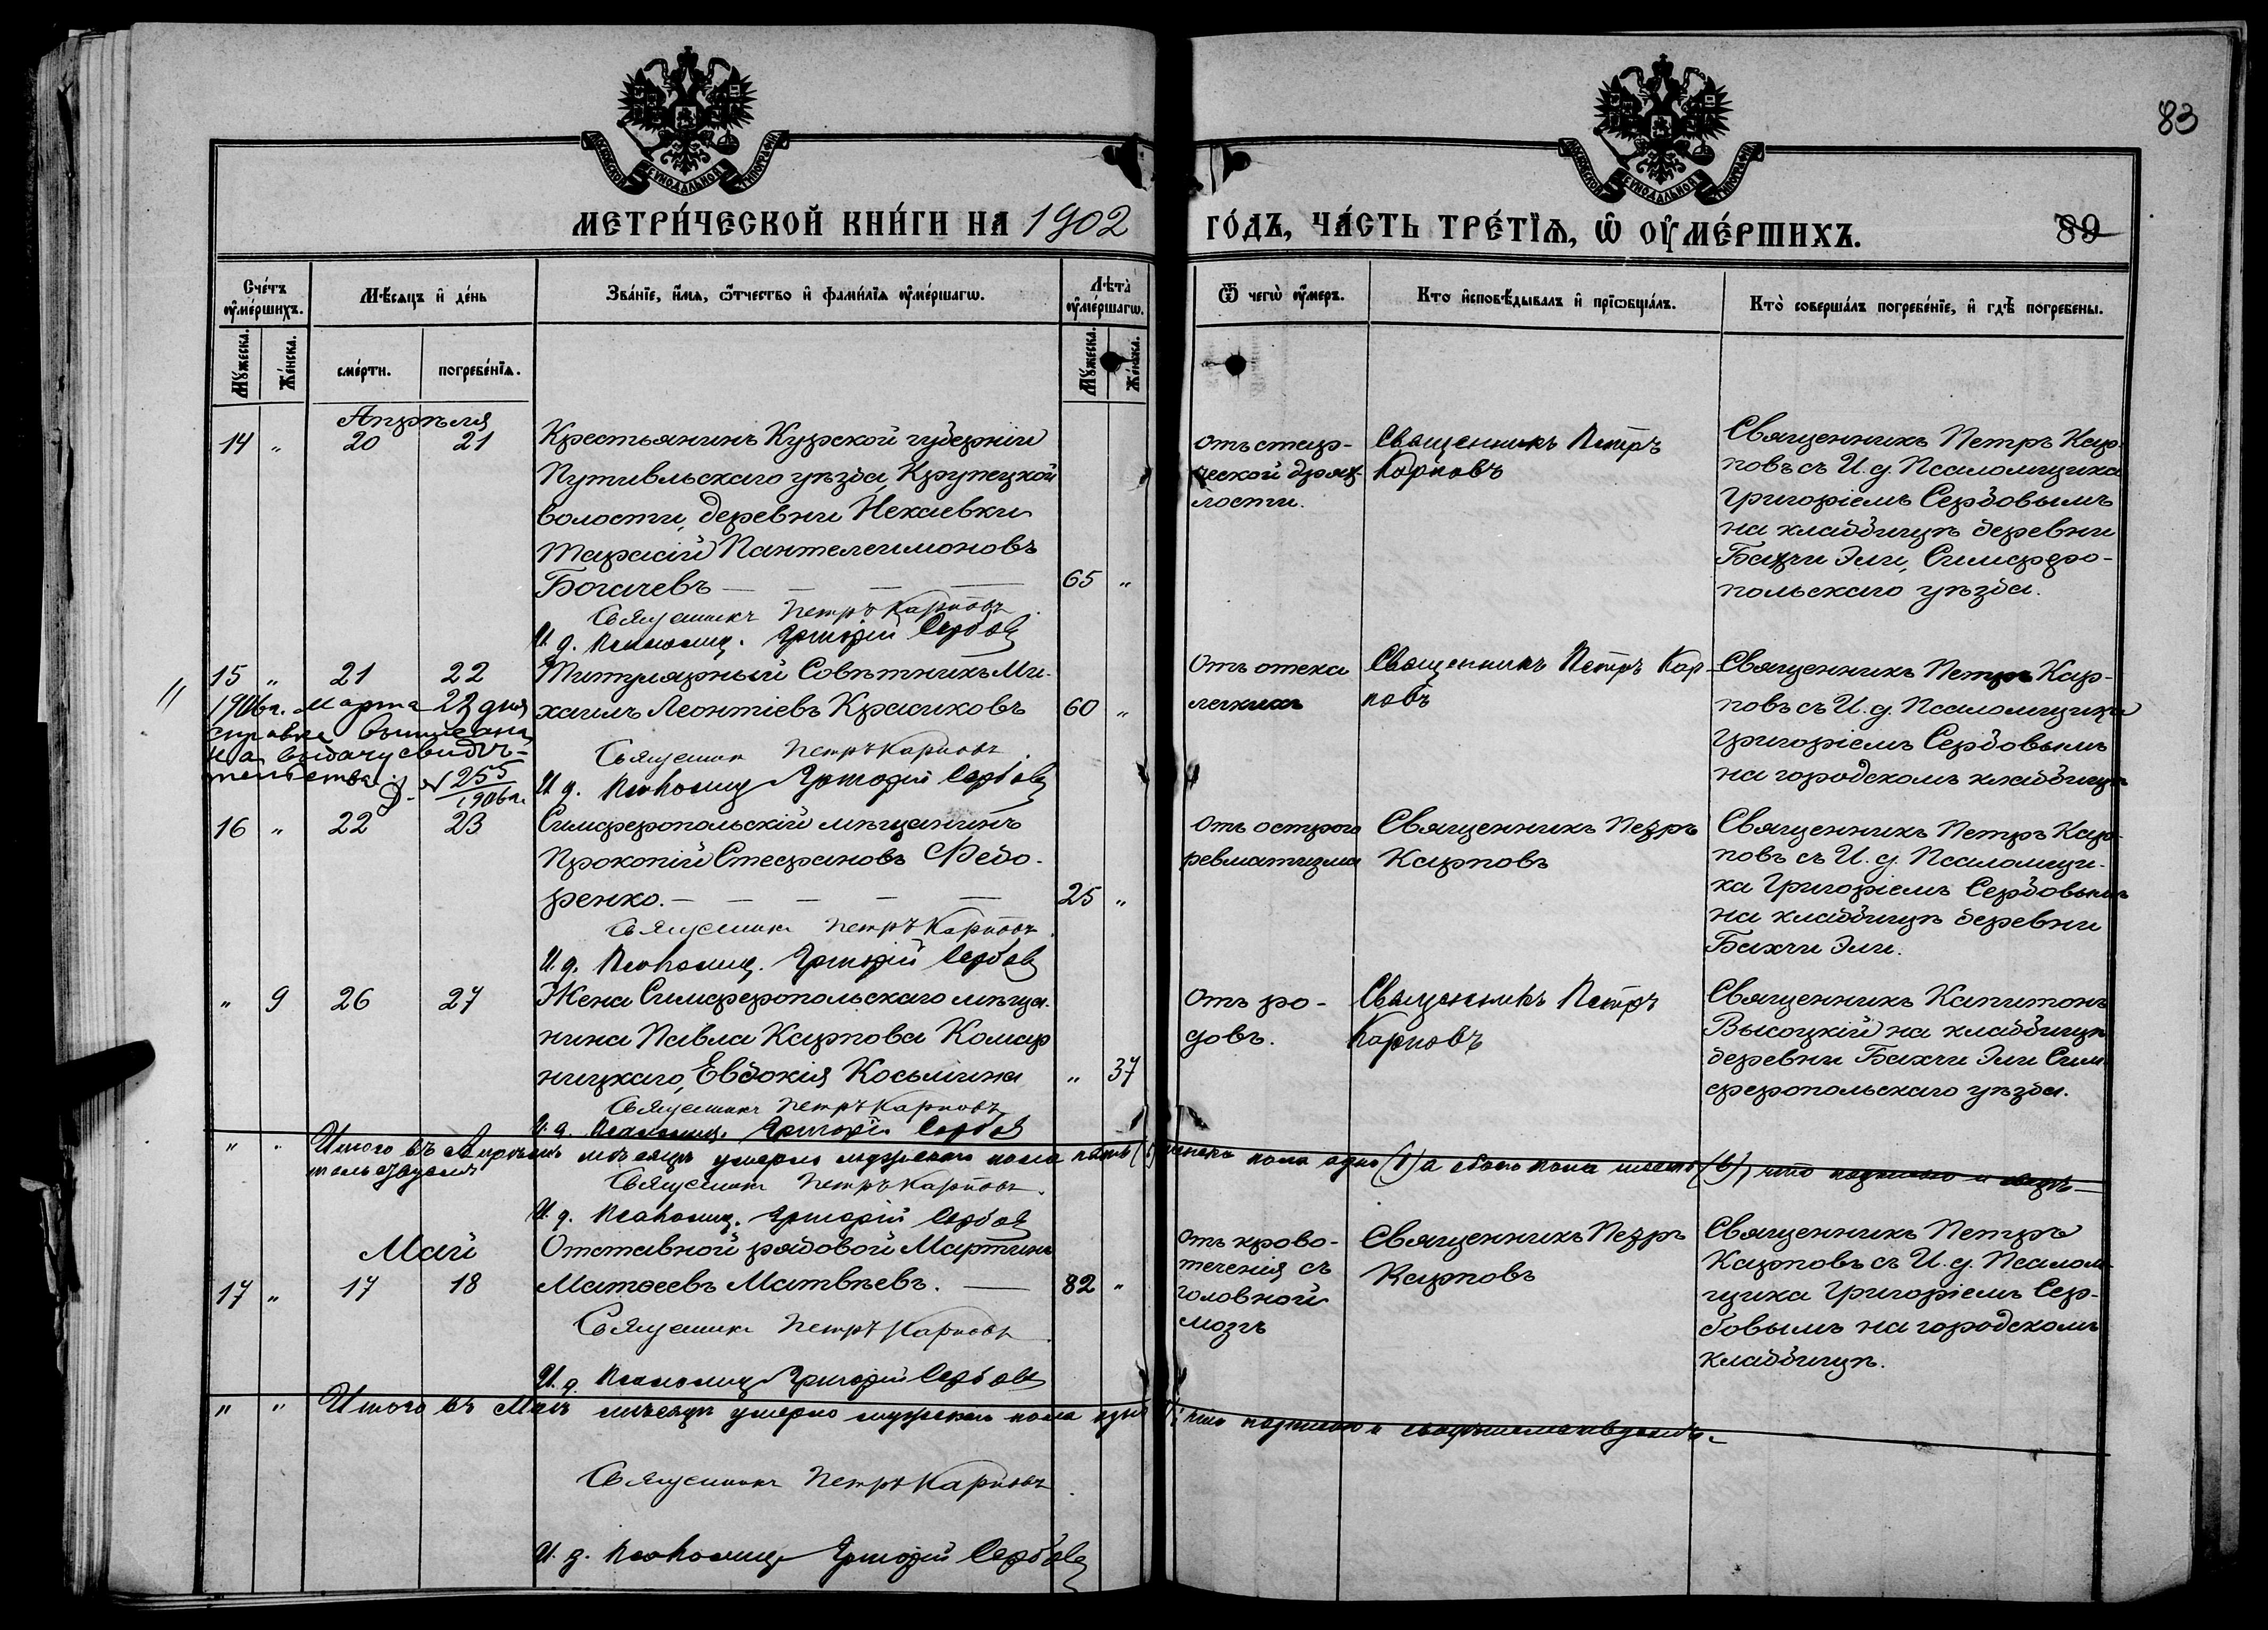 83
МОСКОВСКОЙ СѴНОДАЛЬНОЙ ТИПОГРАФІИ
МОСКОВСКОЙ СѴНОДАЛЬНОЙ ТИПОГРАФІИ
МЕТРИ́ЧЕСКОЙ КНИ́ГИ НА 1902
ГО́ДЪ, ЧА́СТЬ ТРЕ́ТЇѦ, Ѽ ОУ҆МЕ́РШИХЪ.
89
Сче́тъ ᲂу҆ме́ршихъ.
Мѣ́сѧцъ и҆ де́нь
Зва́нїе, и҆́мѧ, ѻ҆́тчество и҆ фами́лїѧ ᲂу҆ме́ршагѡ.
Лѣта̀ ᲂу҆ме́ршагѡ.
Ѿ чегѡ̀ ᲂу҆́меръ.
Кто̀ и҆сповѣ́дывалъ и҆ прїѡбща́лъ.
Кто̀ соверша́лъ погребе́нїе, и҆ гдѣ̀ погребены̀.
Му́жеска.
Же́нска.
сме́рти.
погребе́нїѧ.
Му́жеска.
Же́нска.
Апрѣля
14 „ 20 21
Крестьянинъ Курской губерніи
Путивльскаго уѣзда, Крупецкой
волости, деревни Некаевки
Тарасій Пантелеимоновъ
Богачевъ — — — — 65 „
Священникъ Петръ Карповъ.
И. д. Псаломщ. Григорій Сербовъ
Отъ стар-
ческой дрях-
лости.
Священникъ Петръ
Карповъ
Священникъ Петръ Кар-
повъ съ И. д. Псаломщика
Григоріемъ Сербовымъ
на кладбищѣ деревни
Бахчи Эли, Симферо-
польскаго уѣзда.
15 „ 21 22
Титулярный Совѣтникъ Ми-
хаилъ Леонтіевъ Красиковъ 60 „
Священник Петръ Карповъ.
И. д. Псаломщ. Григорій Сербовъ
1906 г. Марта 22 дня
справка выписана
на выдачу свидѣ-
тельства
№ 255
1906 г.
Отъ отека
легкихъ
Священникъ Петръ Кар-
повъ
Священникъ Петръ Кар-
повъ съ И. д. Псаломщика
Григоріемъ Сербовымъ
на городскомъ кладбищѣ
16 „ 22 23
Симферопольскій мѣщанинъ
Прокопій Стефановъ Федо-
ренко. — — — — 25 „
Священник Петръ Карповъ.
И. д. Псаломщ. Григорій Сербовъ
Отъ острого
ревматизма
Священникъ Петръ
Карповъ
Священникъ Петръ Кар-
повъ съ И. д. Псаломщи-
ка Григоріемъ Сербовымъ
на кладбищѣ деревни
Бахчи Эли.
„ 9 26 27
Жена Симферопольскаго мѣща-
нина Павла Карпова Комар
ницкаго, Евдокія Косьмина „ 37
Священник Петръ Карповъ
И. д. Псаломщ. Григорій Сербовъ
Отъ ро-
довъ.
Священникъ Петръ
Карповъ
Священникъ Капитонъ
Высоцкій на кладбищѣ
деревни Бахчи Эли Сим-
феропольскаго уѣзда.
„ „ Итого въ Апрѣлѣ мѣсяцѣ умерло мужскаго пола пять женск. пола одна (1) а обоего пола шесть (6), что подписью и свидѣ-
тельствуемъ
Священник Петръ Карповъ.
И. д. Псаломщ. Григорій Сербовъ
Май
17 „ 17 18
Отставной рядовой Мартинъ
Матѳеевъ Матвѣевъ. — 82 „
Священник Петръ Карповъ.
И. д. Псаломщ. Григорій Сербовъ
Отъ крово-
теченія съ
головной
мозгъ
Священникъ Петръ
Карповъ
Священникъ Петръ
Карповъ съ И. д. Псалом-
щика Григоріемъ Сер-
бовымъ на городскомъ
кладбищѣ.
„ „ Итого въ Маѣ мѣсяцѣ умерло мужскаго пола одинъ что подписью и свидѣтельствуемъ.
Священник Петръ Карповъ.
И. д. Псаломщ. Григорій Сербовъ